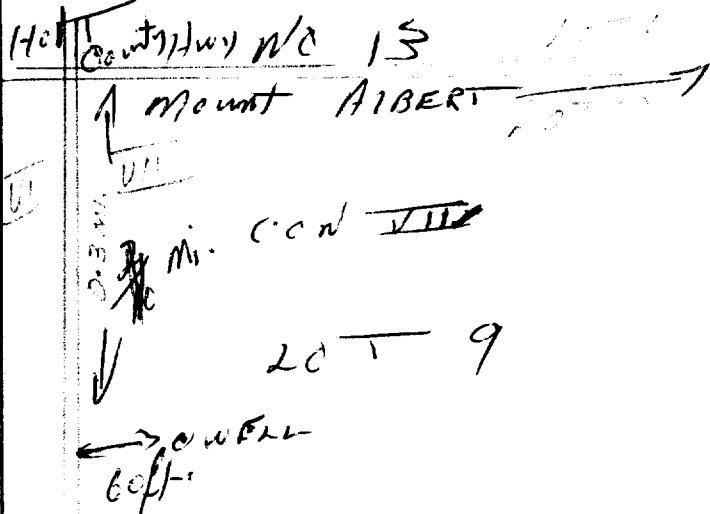 County Hwy NO 13
Mount AlBERT
VII
VI
0.3 Mi.
Mi. CON VII
LOT 9
O WELL
60ft.